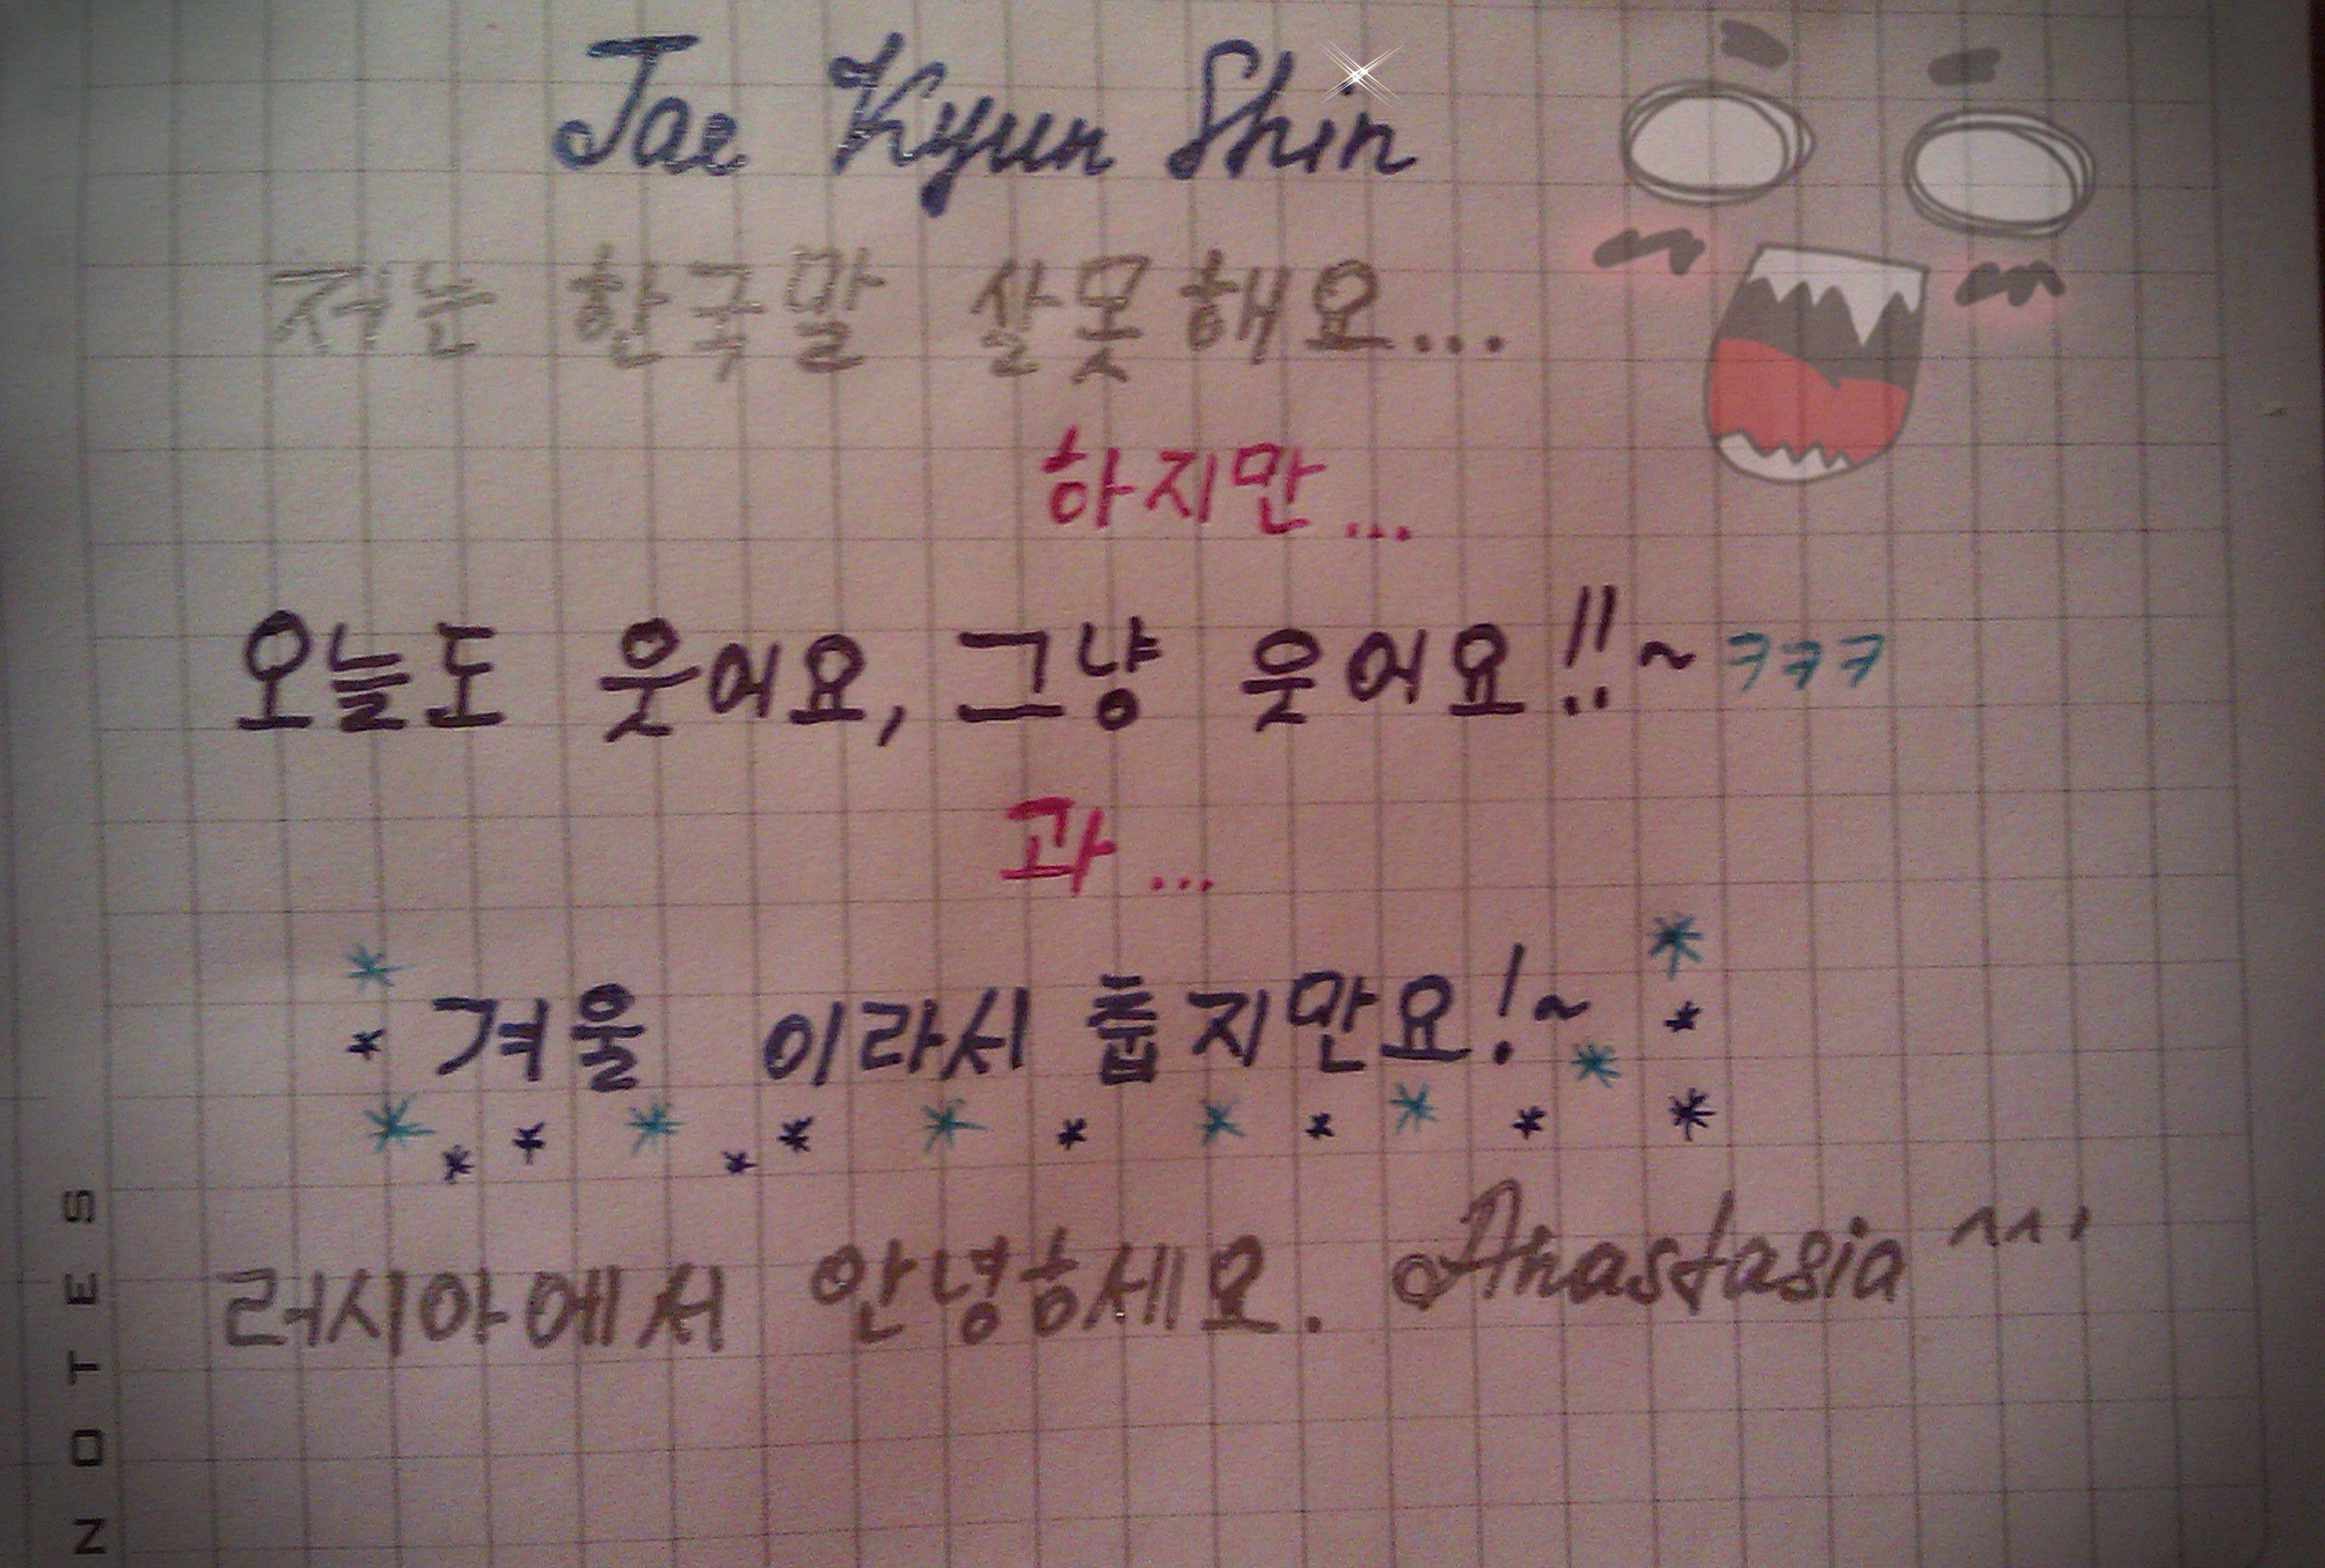 Jae Kyun Shin
저는 한국말 살못해요...
하지만...
오늘도 웃어요, 그냥 웃어요!!~ㅋㅋㅋ
과...
겨울 이라시 춥지만요!~
러시아에서 안녕하세요. Anastasia ^^'
NOTES